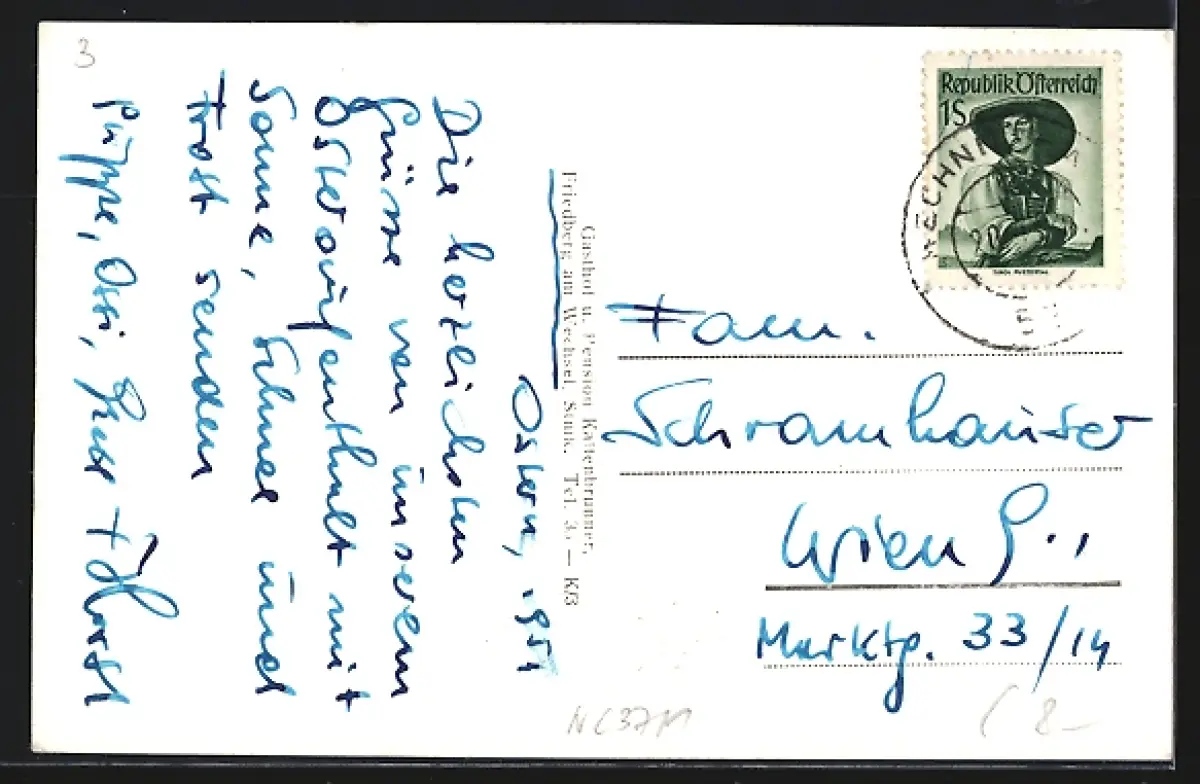 3
Ostern, 1957
Die herzlichsten
Grüsse von unserem
Osteraufenthalt mit
Sonne, Schnee und
Frost senden
Puppe, Ossi, + Horst
Gasthof u. Pension Kaltenbrunner,
Friedberg am Wechsel, Stmk. Tel. 35 — KG
Republik Österreich
1S
20
Fam.
Schramhauser
Wien 9..
Marktg. 33/14